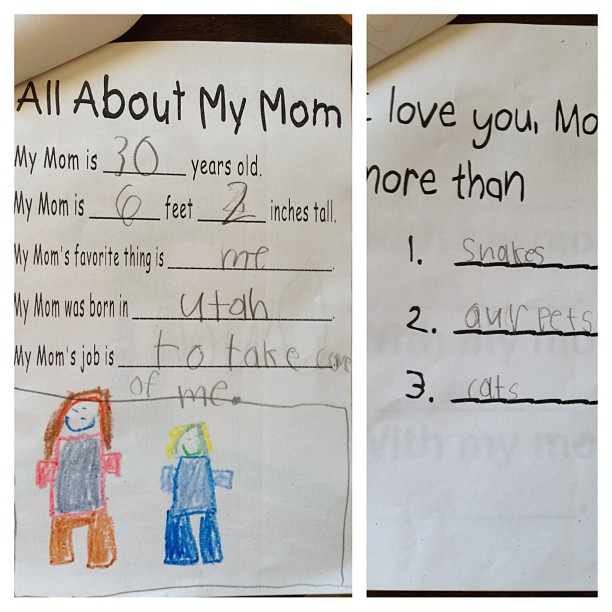 All About My Mom
My Mom is 30 years old.
My Mom is 6 feet 2 inches tall.
My Mom's favorite thing is me.
My Mom was born in utah.
My Mom's job is to take care
of me.
I love you, Mo
more than
1. Snakes
2. aur pets
3. cats